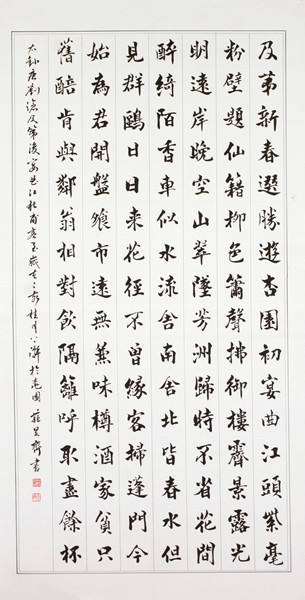 及苐新春選勝遊杏園初宴曲江頭紫毫
粉壁題仙籍柳色簫聲拂御樓霽景露光
明遠岸晚空山翠墜芳洲歸時不省花間
醉綺陌香車似水流舍南舍北皆春水但
見群鷗日日來花徑不曾緣客掃蓬門今
始為君開盤飧市遠無兼味樽酒家貧只
舊醅肯與鄰翁相對飲隔籬呼取盡餘杯
右錄唐劉滄及第後宴曲江杜甫客至歲桂月於園書